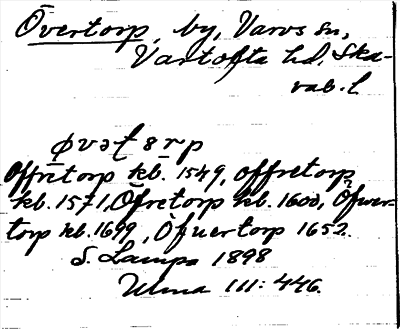 Övertorp, by, Varvs sn,
Vartofta hd. Ska-
rab. l.
Offretorp kb. 1549, offretorp
kb. 1571, Öfretorp kb. 1600, Öfwer-
torp kb. 1699, Öfuertorp 1652.
S. Lampa 1898
Ulma 111: 446.